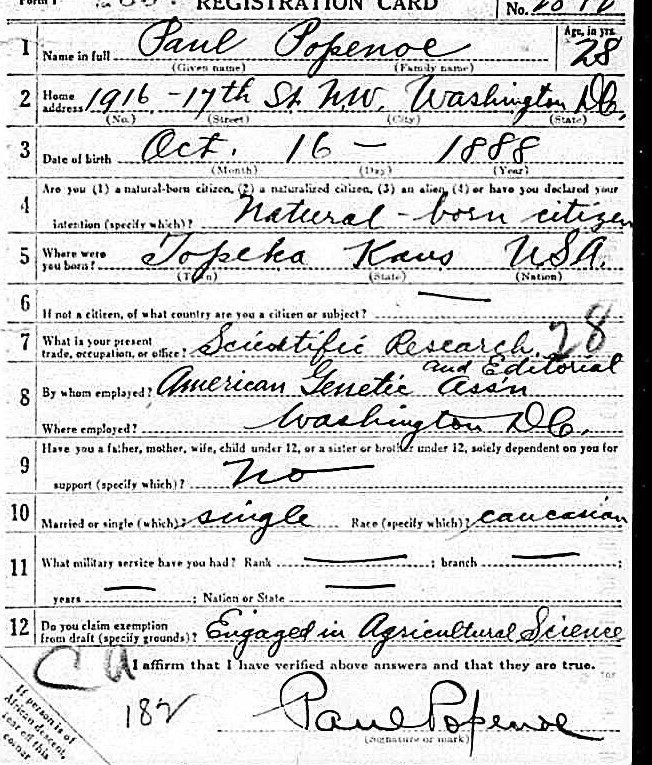 Form 1 REGISTRATION CARD No.
1 Name in full Paul Popenoe Age, in yrs. 28
(Given name) (Family name)
2 Home address 1916 - 17th St. N.W. Washington D.C.
(No.) (Street) (City) (State)
3 Date of birth Oct. 16 - 1888
(Month) (Day) (Year)
Are you (1) a natural-born citizen, (2) a naturalized citizen, (3) an alien, (4) or have you declared your
4 intention (specify which)? Natural-born citizen
5 Where were you born? Topeka Kans USA.
(Town) (State) (Nation)
6 If not a citizen, of what country are you a citizen or subject? —
7 What is your present trade, occupation, or office? Scientific Research, 28
and Editorial
8 By whom employed? American Genetic Ass'n
Where employed? Washington D.C.
9 Have you a father, mother, wife, child under 12, or a sister or brother under 12, solely dependent on you for
support (specify which)? No
10 Married or single (which)? single Race (specify which)? caucasian
11 What military service have you had? Rank — ; branch — ;
years — ; Nation or State —
12 Do you claim exemption from draft (specify grounds)? Engaged in Agricultural Science
I affirm that I have verified above answers and that they are true.
Ca
182
Paul Popenoe
(Signature or mark)
If person is of
African descent,
tear off this
corner.